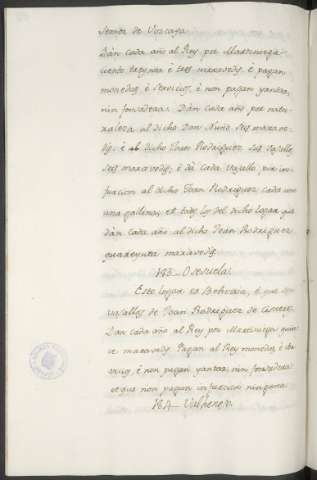 Señorio de Viscaya
Dan cada año al Rey por Martiniega
ciento treynta è tres maravedis, è pagan
monedas, è servicios, è non pagan yantar,
nin fonsadera. Dan cada año por natu-
raleza al dicho Don Nuño seis marave-
dis, è al dicho Juan Rodriguez sus vasallos
seis maravedis, è dà cada vasallo por in-
furcion al dicho Joan Rodriguez cada año
una gallina, et todos los del dicho logar que
dàn cada año al dicho Joan Rodriguez
quarenta maravedis.
143_
Este logar es Behetria, è que son
vasallos de Joan Rodriguez de Cisneros
Dan cada año al Rey por Martiniega quin-
ce maravedis. Pagan al Rey monedas, è ser-
vicios, è non pagan yantar, nin fonsadera
et que non pagan infurcion ninguna.
144_